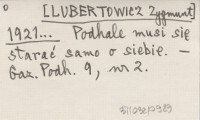 [LUBERTOWICZ Zygmunt]
1921... Podhale musi się
starać samo o siebie. —
Gaz. Podh. 9, nr 2.